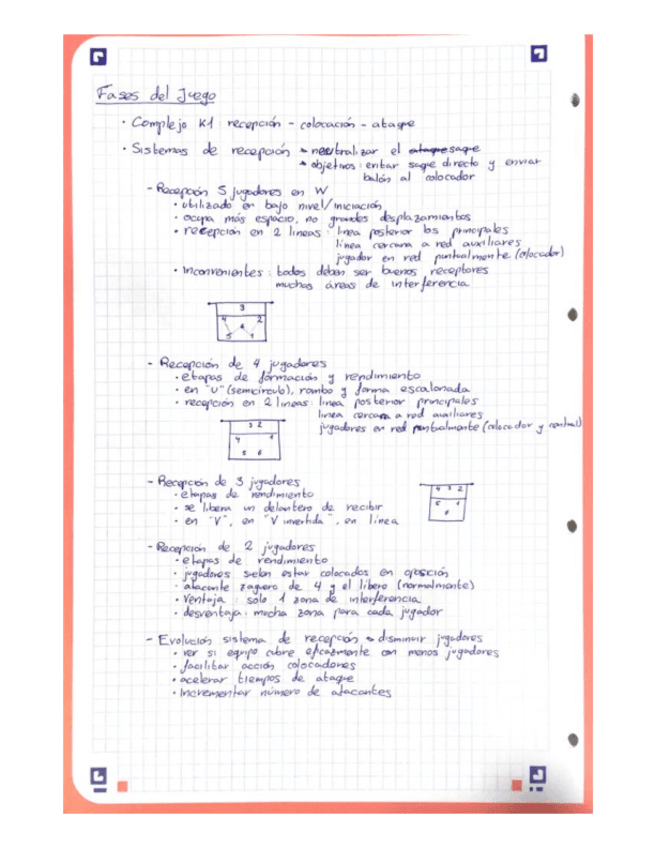 Fases del Juego
· Complejo K1: recepción - colocación - ataque
· Sistemas de recepción → neutralizar el ataque saque
→ objetivos: evitar saque directo y enviar
balón al colocador
- Recepción 5 jugadores en W
· utilizado en bajo nivel/iniciación
· ocupa más espacio, no grandes desplazamientos
· recepción en 2 lineas: linea posterior los principales
línea cercana a red auxiliares
jugador en red puntualmente (colocador)
· Inconvenientes: todos deben ser buenos receptores
muchas áreas de interferencia
3
4 2
6
5 1
- Recepción de 4 jugadores
· etapas de formación y rendimiento
· en "U" (semicírculo), rombo y forma escalonada
· recepción en 2 lineas: linea posterior principales
linea cercana a red auxiliares
jugadores en red puntualmente (colocador y central)
3 2
4 1
5 6
- Recepción de 3 jugadores
· etapas de rendimiento
· se libera un delantero de recibir
· en "V", en "V invertida", en línea
4 3 2
5 1
6
- Recepción de 2 jugadores
· etapas de rendimiento
· jugadores suelen estar colocados en oposición
· atacante zaguero de 4 y el líbero (normalmente)
· Ventaja: solo 1 zona de interferencia
· desventaja: mucha zona para cada jugador
- Evolución sistema de recepción → disminuir jugadores
· ver si equipo cubre eficazmente con menos jugadores
· facilitar acción colocadores
· acelerar tiempos de ataque
· Incrementar número de atacantes